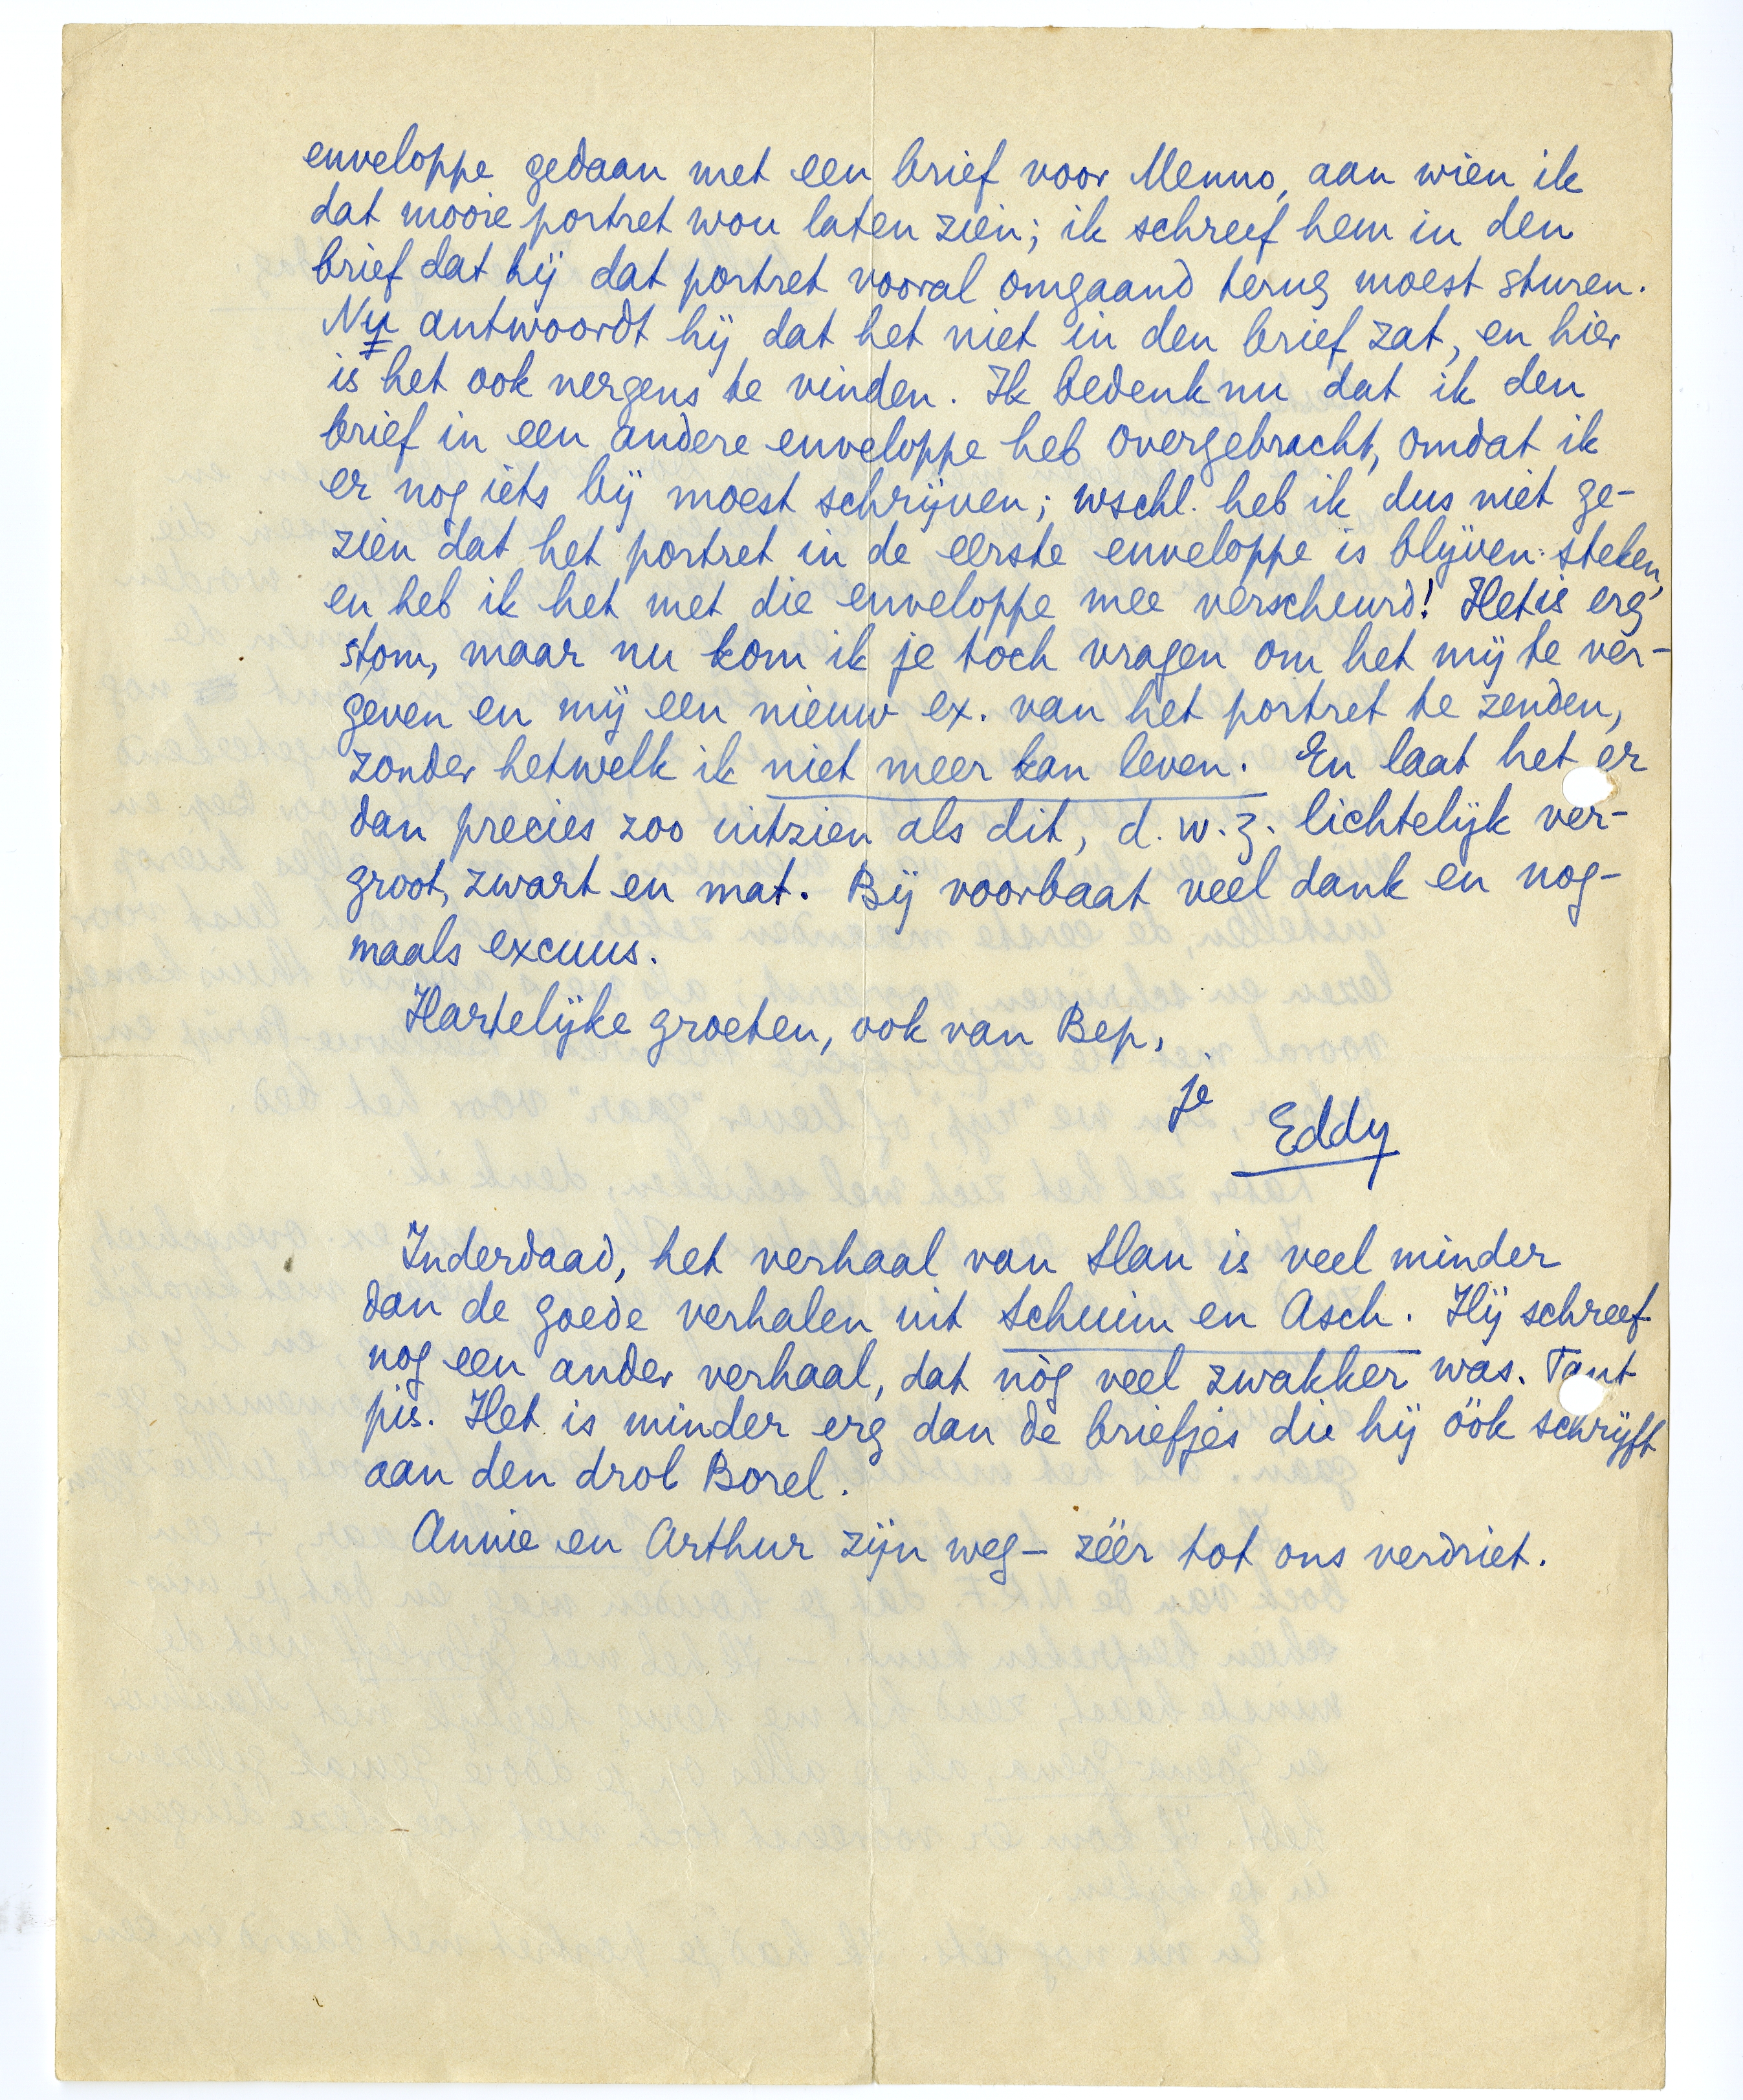 enveloppe gedaan met een brief voor Menno, aan wien ik
dat mooie portret wou laten zien; ik schreef hem in den
brief dat hij dat portret vooral omgaand terug moest sturen.
Nu antwoordt hij dat het niet in den brief zat, en hier
is het ook nergens te vinden. Ik bedenk nu dat ik den
brief in een andere enveloppe heb overgebracht, omdat ik
er nog iets bij moest schrijven; wschl. heb ik dus niet ge-
zien dat het portret in de eerste enveloppe is blijven steken,
en heb ik het met die enveloppe mee verscheurd! Het is erg
stom, maar nu kom ik je toch vragen om het mij te ver-
geven en mij een nieuw ex. van het portret te zenden,
zonder hetwelk ik niet meer kan leven. En laat het er
dan precies zoo uitzien als dit, d.w.z. lichtelijk ver-
groot, zwart en mat. Bij voorbaat veel dank en nog-
maals excuus.
Hartelijke groeten, ook van Bep,
je
Eddy
Inderdaad, het verhaal van Slau is veel minder
dan de goede verhalen uit Schuim en Asch. Hij schreef
nog een ander verhaal, dat nòg veel zwakker was. Tant
pis. Het is minder erg dan de briefjes die hij óók schrijft
aan den drol Borel.
Annie en Arthur zijn weg – zéér tot ons verdriet.